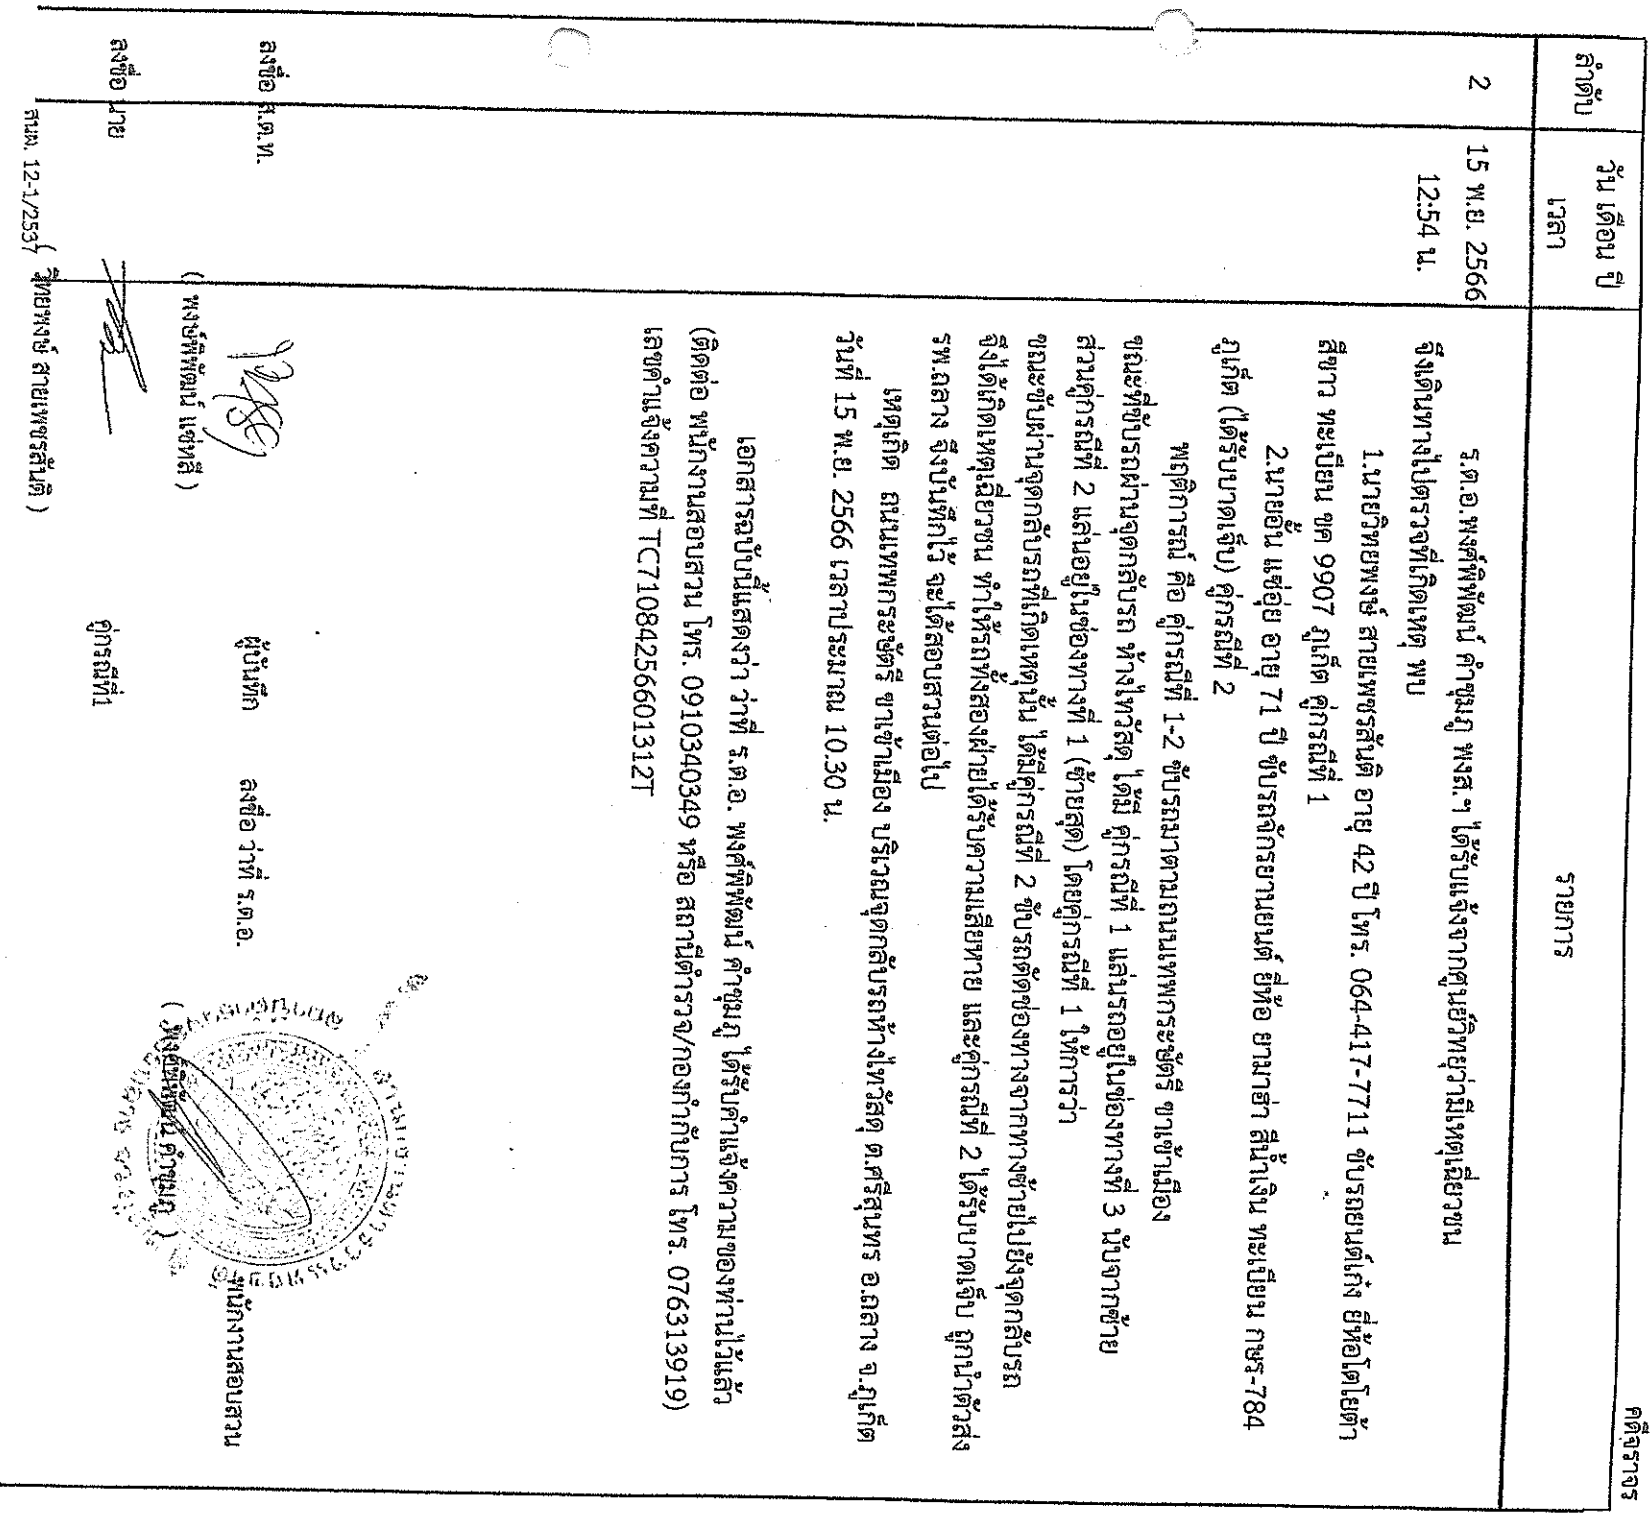 คดีจราจร
ลำดับ
วัน เดือน ปี
เวลา
รายการ
2
15 พ.ย. 2566
12:54 น.
ร.ต.อ.พงศ์พิพัฒน์ คำชุมภู พงส.ฯ ได้รับแจ้งจากศูนย์วิทยุว่ามีเหตุเฉี่ยวชน
จึงเดินทางไปตรวจที่เกิดเหตุ พบ
1.นายวิทยพงษ์ สายเพชรสันติ อายุ 42 ปี โทร. 064-417-7711 ขับรถยนต์เก๋ง ยี่ห้อโตโยต้า
สีขาว ทะเบียน ขค 9907 ภูเก็ต คู่กรณีที่ 1
2.นายอั้น แซ่อุ่ย อายุ 71 ปี ขับรถจักรยานยนต์ ยี่ห้อ ยามาฮ่า สีน้ำเงิน ทะเบียน กษร-784
ภูเก็ต (ได้รับบาดเจ็บ) คู่กรณีที่ 2
พฤติการณ์ คือ คู่กรณีที่ 1-2 ขับรถมาตามถนนเทพกระษัตรี ขาเข้าเมือง
ขณะที่ขับรถผ่านจุดกลับรถ ห้างไทวัสดุ ได้มี คู่กรณีที่ 1 แล่นรถอยู่ในช่องทางที่ 3 นับจากซ้าย
ส่วนคู่กรณีที่ 2 แล่นอยู่ในช่องทางที่ 1 (ซ้ายสุด) โดยคู่กรณีที่ 1 ให้การว่า
ขณะขับผ่านจุดกลับรถที่เกิดเหตุนั้น ได้มีคู่กรณีที่ 2 ขับรถตัดช่องทางจากทางซ้ายไปยังจุดกลับรถ
จึงได้เกิดเหตุเฉี่ยวชน ทำให้รถทั้งสองฝ่ายได้รับความเสียหาย และคู่กรณีที่ 2 ได้รับบาดเจ็บ ถูกนำตัวส่ง
รพ.ถลาง จึงบันทึกไว้ จะได้สอบสวนต่อไป
เหตุเกิด ถนนเทพกระษัตรี ขาเข้าเมือง บริเวณจุดกลับรถห้างไทวัสดุ ต.ศรีสุนทร อ.ถลาง จ.ภูเก็ต
วันที่ 15 พ.ย. 2566 เวลาประมาณ 10.30 น.
เอกสารฉบับนี้แสดงว่า ว่าที่ ร.ต.อ. พงศ์พิพัฒน์ คำชุมภู ได้รับคำแจ้งความของท่านไว้แล้ว
(ติดต่อ พนักงานสอบสวน โทร. 0910340349 หรือ สถานีตำรวจ/กองกำกับการ โทร. 076313919)
เลขคำแจ้งความที่ TC71084256601312T
ลงชื่อ ส.ต.ท. ผู้บันทึก ลงชื่อ ว่าที่ ร.ต.อ. พนักงานสอบสวน
( พงษ์พิพัฒน์ แซ่หลี ) ( พงศ์พิพัฒน์ คำชุมภู )
ลงชื่อ นาย คู่กรณีที่1
( วิทยพงษ์ สายเพชรสันติ )
สนผ. 12-1/2537